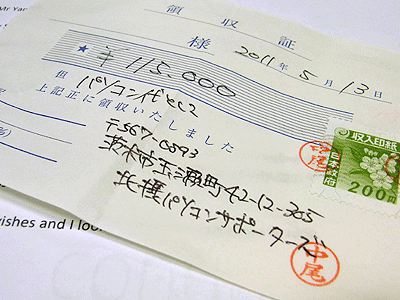 Mr Yar
領収証
様 2011年5月13日
★ ¥115,000
但 パソコン代として
上記正に領収いたしました
〒567-0893
茨木市玉瀬町42-12-305
北摂パソコンサポーターズ
中尾
収入印紙
200円
中尾
ishes and I loo